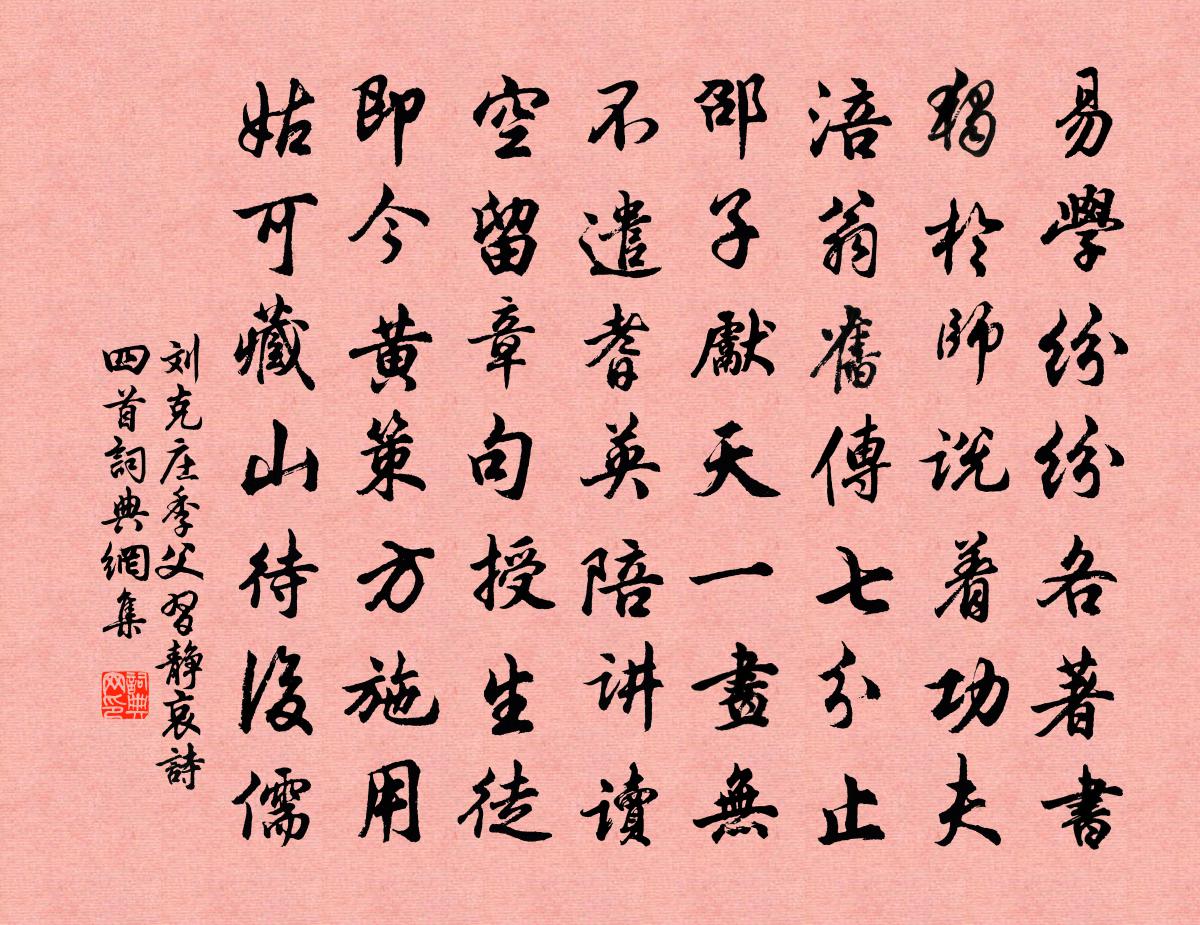 易學紛紛各著書
獨於師説着功夫
涪翁舊傳七分止
邵子獻天一畫無
不遣耆英陪讲讀
空留章句授生徒
即今黄策方施用
姑可藏山待後儒
刘克庄季父習静哀詩
四首詞典網集
詞典网印